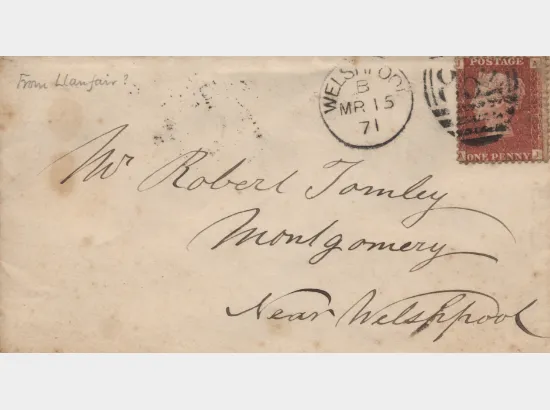 From Llanfair?
WELSHPOOL
B
MR 15
71
POSTAGE
ONE PENNY
Mr Robert Tomley
Montgomery
Near Welshpool